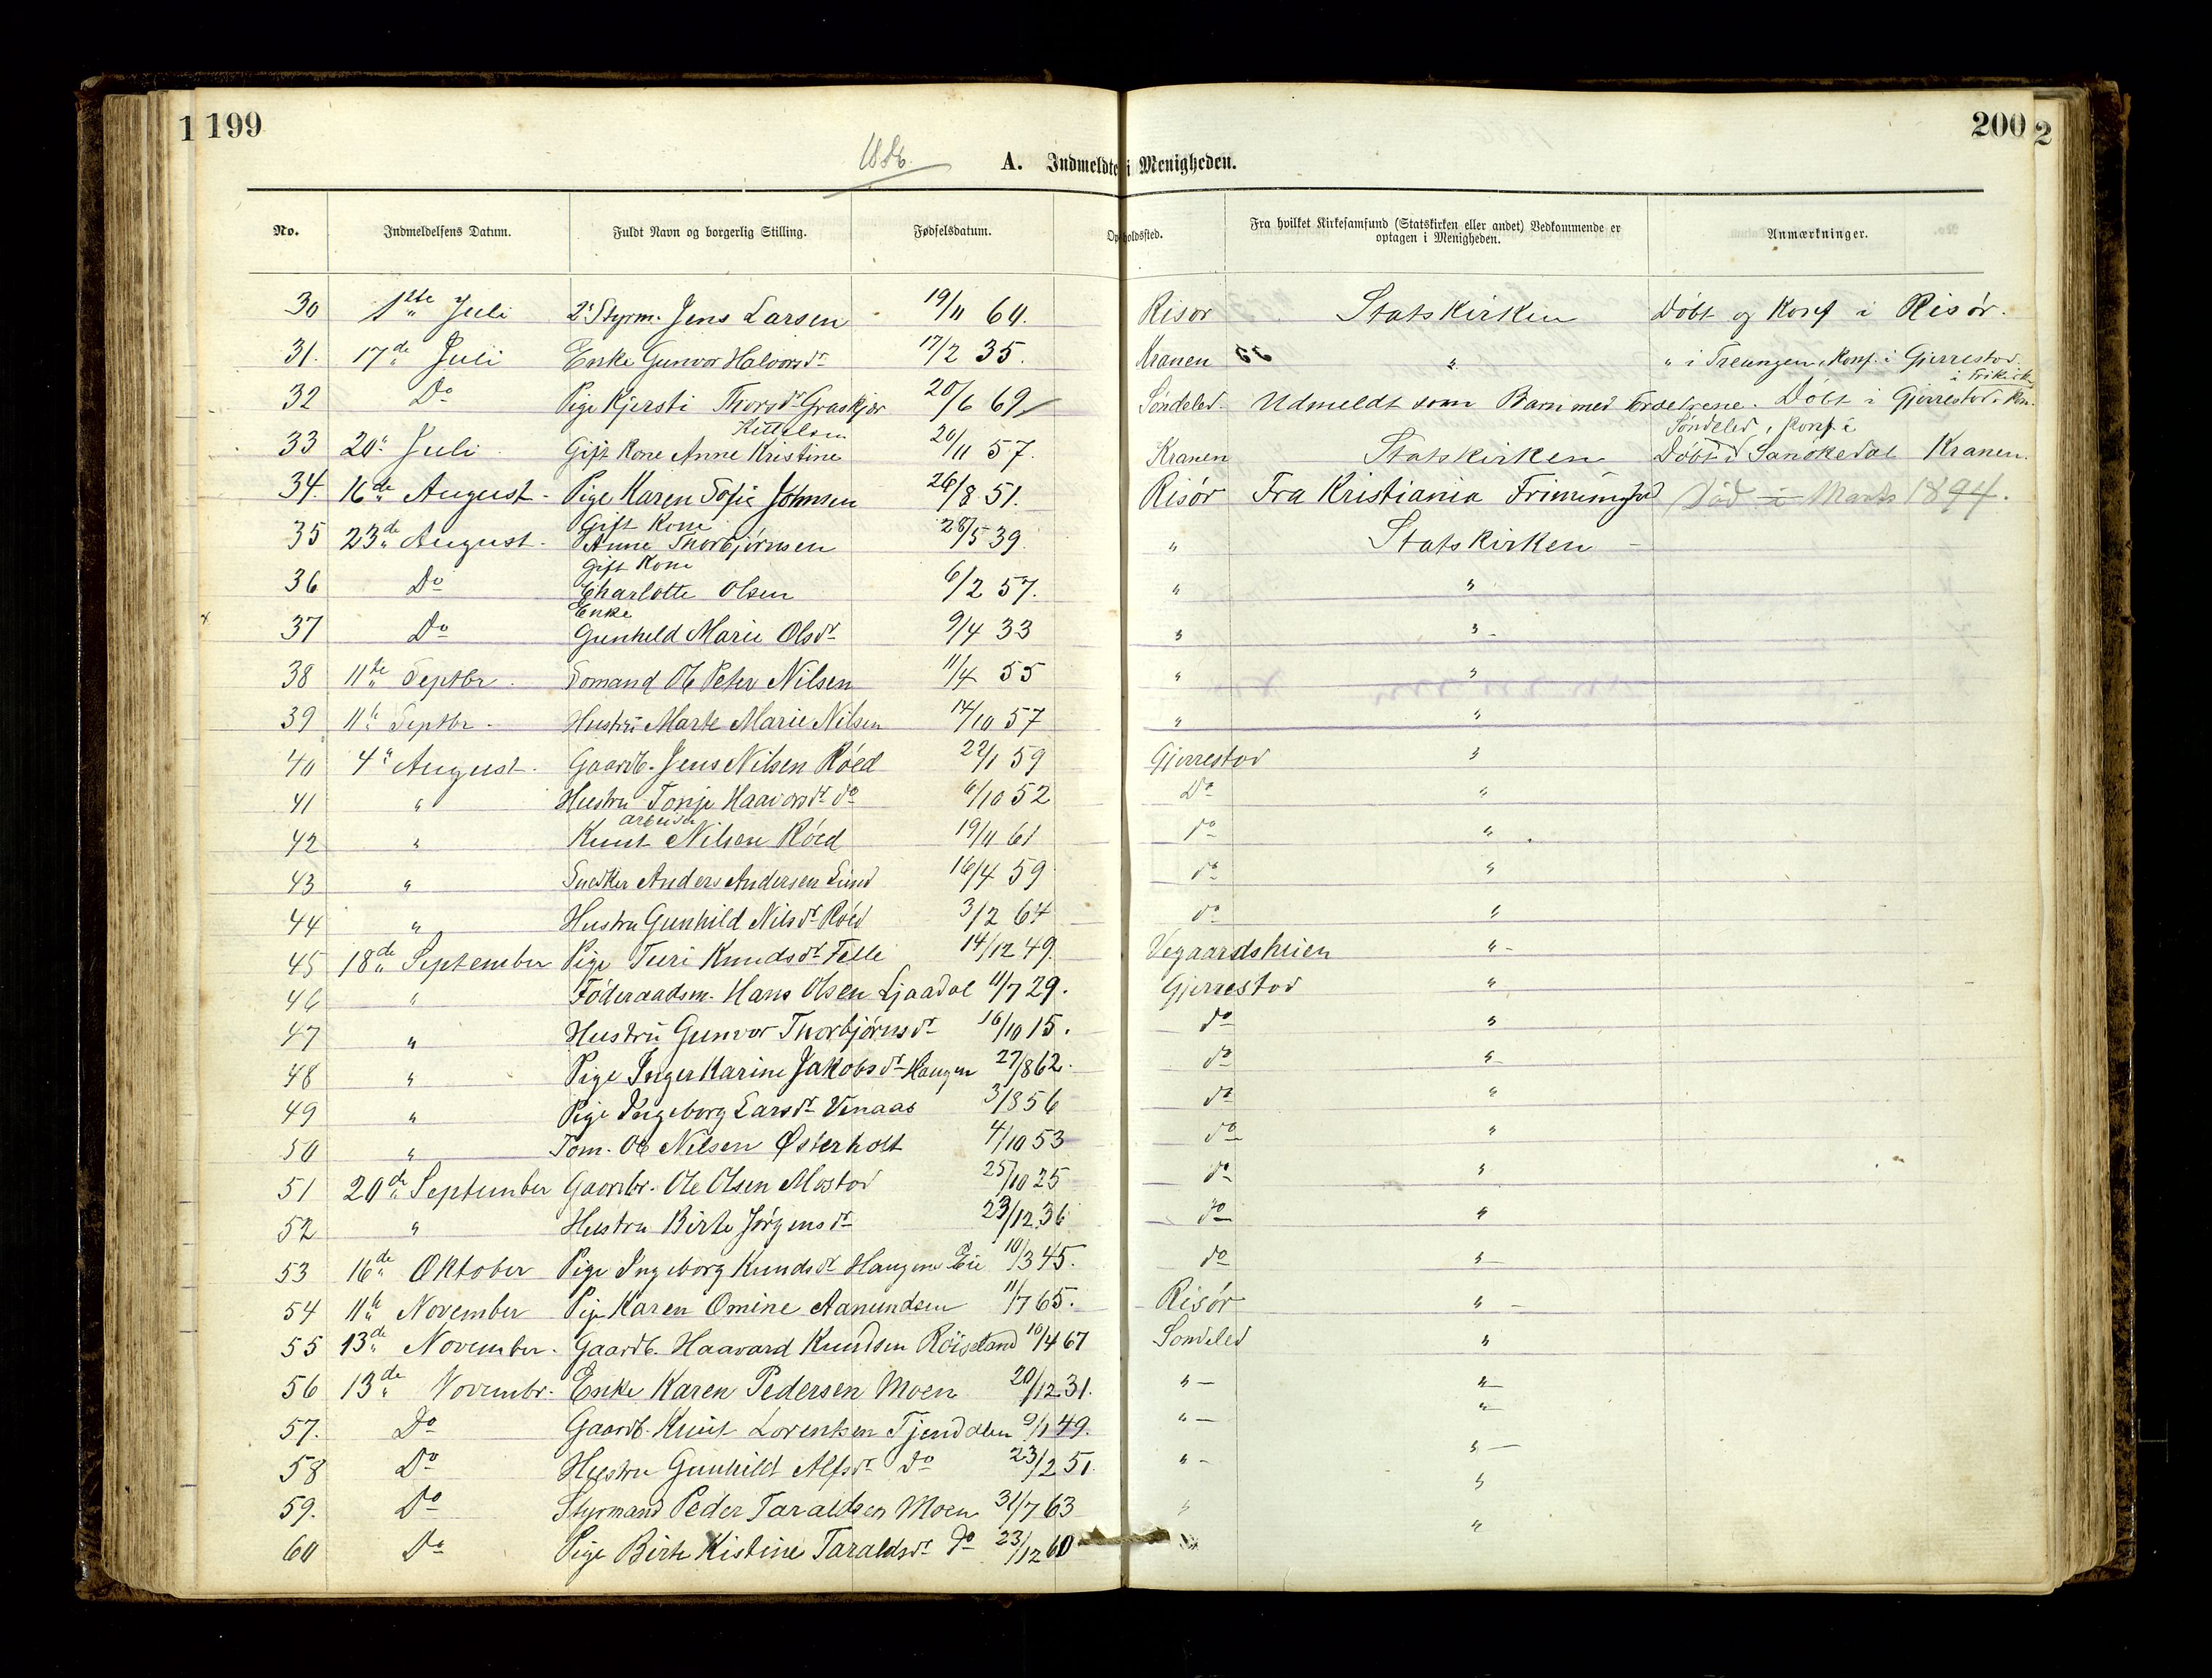 1 199
200 2
1886.
A. Indmeldte i Menigheden.
No. Indmeldelsens Datum. Fuldt Navn og borgerlig Stilling. Fødselsdatum. Opholdssted. Fra hvilket Kirkesamfund (Statskirken eller andet) Vedkommende er optagen i Menigheden. Anmærkninger.
30 1ste Juli 2. Styrm. Jens Larsen 19/11 64. Risør Statskirken Døbt og Konf i Risør.
31. 17de Juli Enke Gunvor Halvorsdr 17/2 35. Kranen " " i Treungen, Konf. i Gjerrestad.
32 Do Pige Kjersti Thorsdr Graskjær 20/6 69 Søndeled. Udmeldt som Barn med Forældrene. Døbt i Gjerrestad. Kon. i Frikirk
33 20 Juli Gift Kone Anne Kristine Kittelsen 20/11 57. Kranen Statskirken Døbt i Sanøkedal Søndeled, Konf i Kranen.
34. 16de August - Pige Karen Sofie Johnsen 26/8 51. Risør Fra Kristiania Frimenighed Død i Marts 1894.
35 23de August - Gift Kone Anne Thorbjørnsen 28/5 39 " Statskirken -
36 Do Gift Kone Charlotte Olsen 6/2 57. " "
37 Do Enke Gunhild Marie Olsdr 9/4 33 " "
38 11te Septbr. Sømand Ole Peter Nilsen 11/4 55 " "
39 11te Septbr - Hustru Marte Marie Nilsen 14/10 57 " "
40 4 August - Gaardb. Jens Nilsen Røed 22/1 59 Gjerrestad "
41 " Hustru Tonje Haavorsdr do 6/10 52 Do "
42 " Arbeider Knut Nilsen Røed 19/11 61 do "
43 " Snedker Anders Andersen Lund 16/4 59 do "
44 " Hustru Gunhild Nilsdr Røed 3/2 64 do "
45 18de September Pige Turi Knudsdr Felle 14/12 49. Vegaardsheien "
46 " Føderaadsm. Hans Olsen Ljaadal 11/7 29. Gjerrestad "
47 " Hustru Gunvor Thorbjørnsdr 16/10 15. do "
48 " Pige Inger Karine Jakobsdr Haugen 27/8 62. do "
49 " Pige Ingeborg Larsdr Venaas 3/8 56 do "
50 " Tøm. Ole Nilsen Østerholt 4/10 53 do "
51 20de September Gaardbr. Ole Olsen Mostad 25/10 25 do "
52 " Hustru Birte Jørgensdr 23/12 36 do "
53 16de Oktober Pige Ingeborg Knudsdr Haugene Eie 10/3 45. do "
54 11te November Pige Karen Omine Aanundsen 11/7 65. Risør "
55 13de November. Gaardb. Haavard Knudsen Røisland 10/4 67 Søndeled "
56 13de Novembr. Enke Karen Pedersen Moen 20/12 31. " "
57. Do Gaardb. Knut Lorentsen Tjenddalen 9/1 49. " "
58 Do Hustru Gunhild Alfsdr do 23/2 51. " "
59. Do Styrmand Peder Taraldsen Moen 31/7 63 " "
60 Do Pige Birte Kistine Taraldsdr do 23/12 60 "